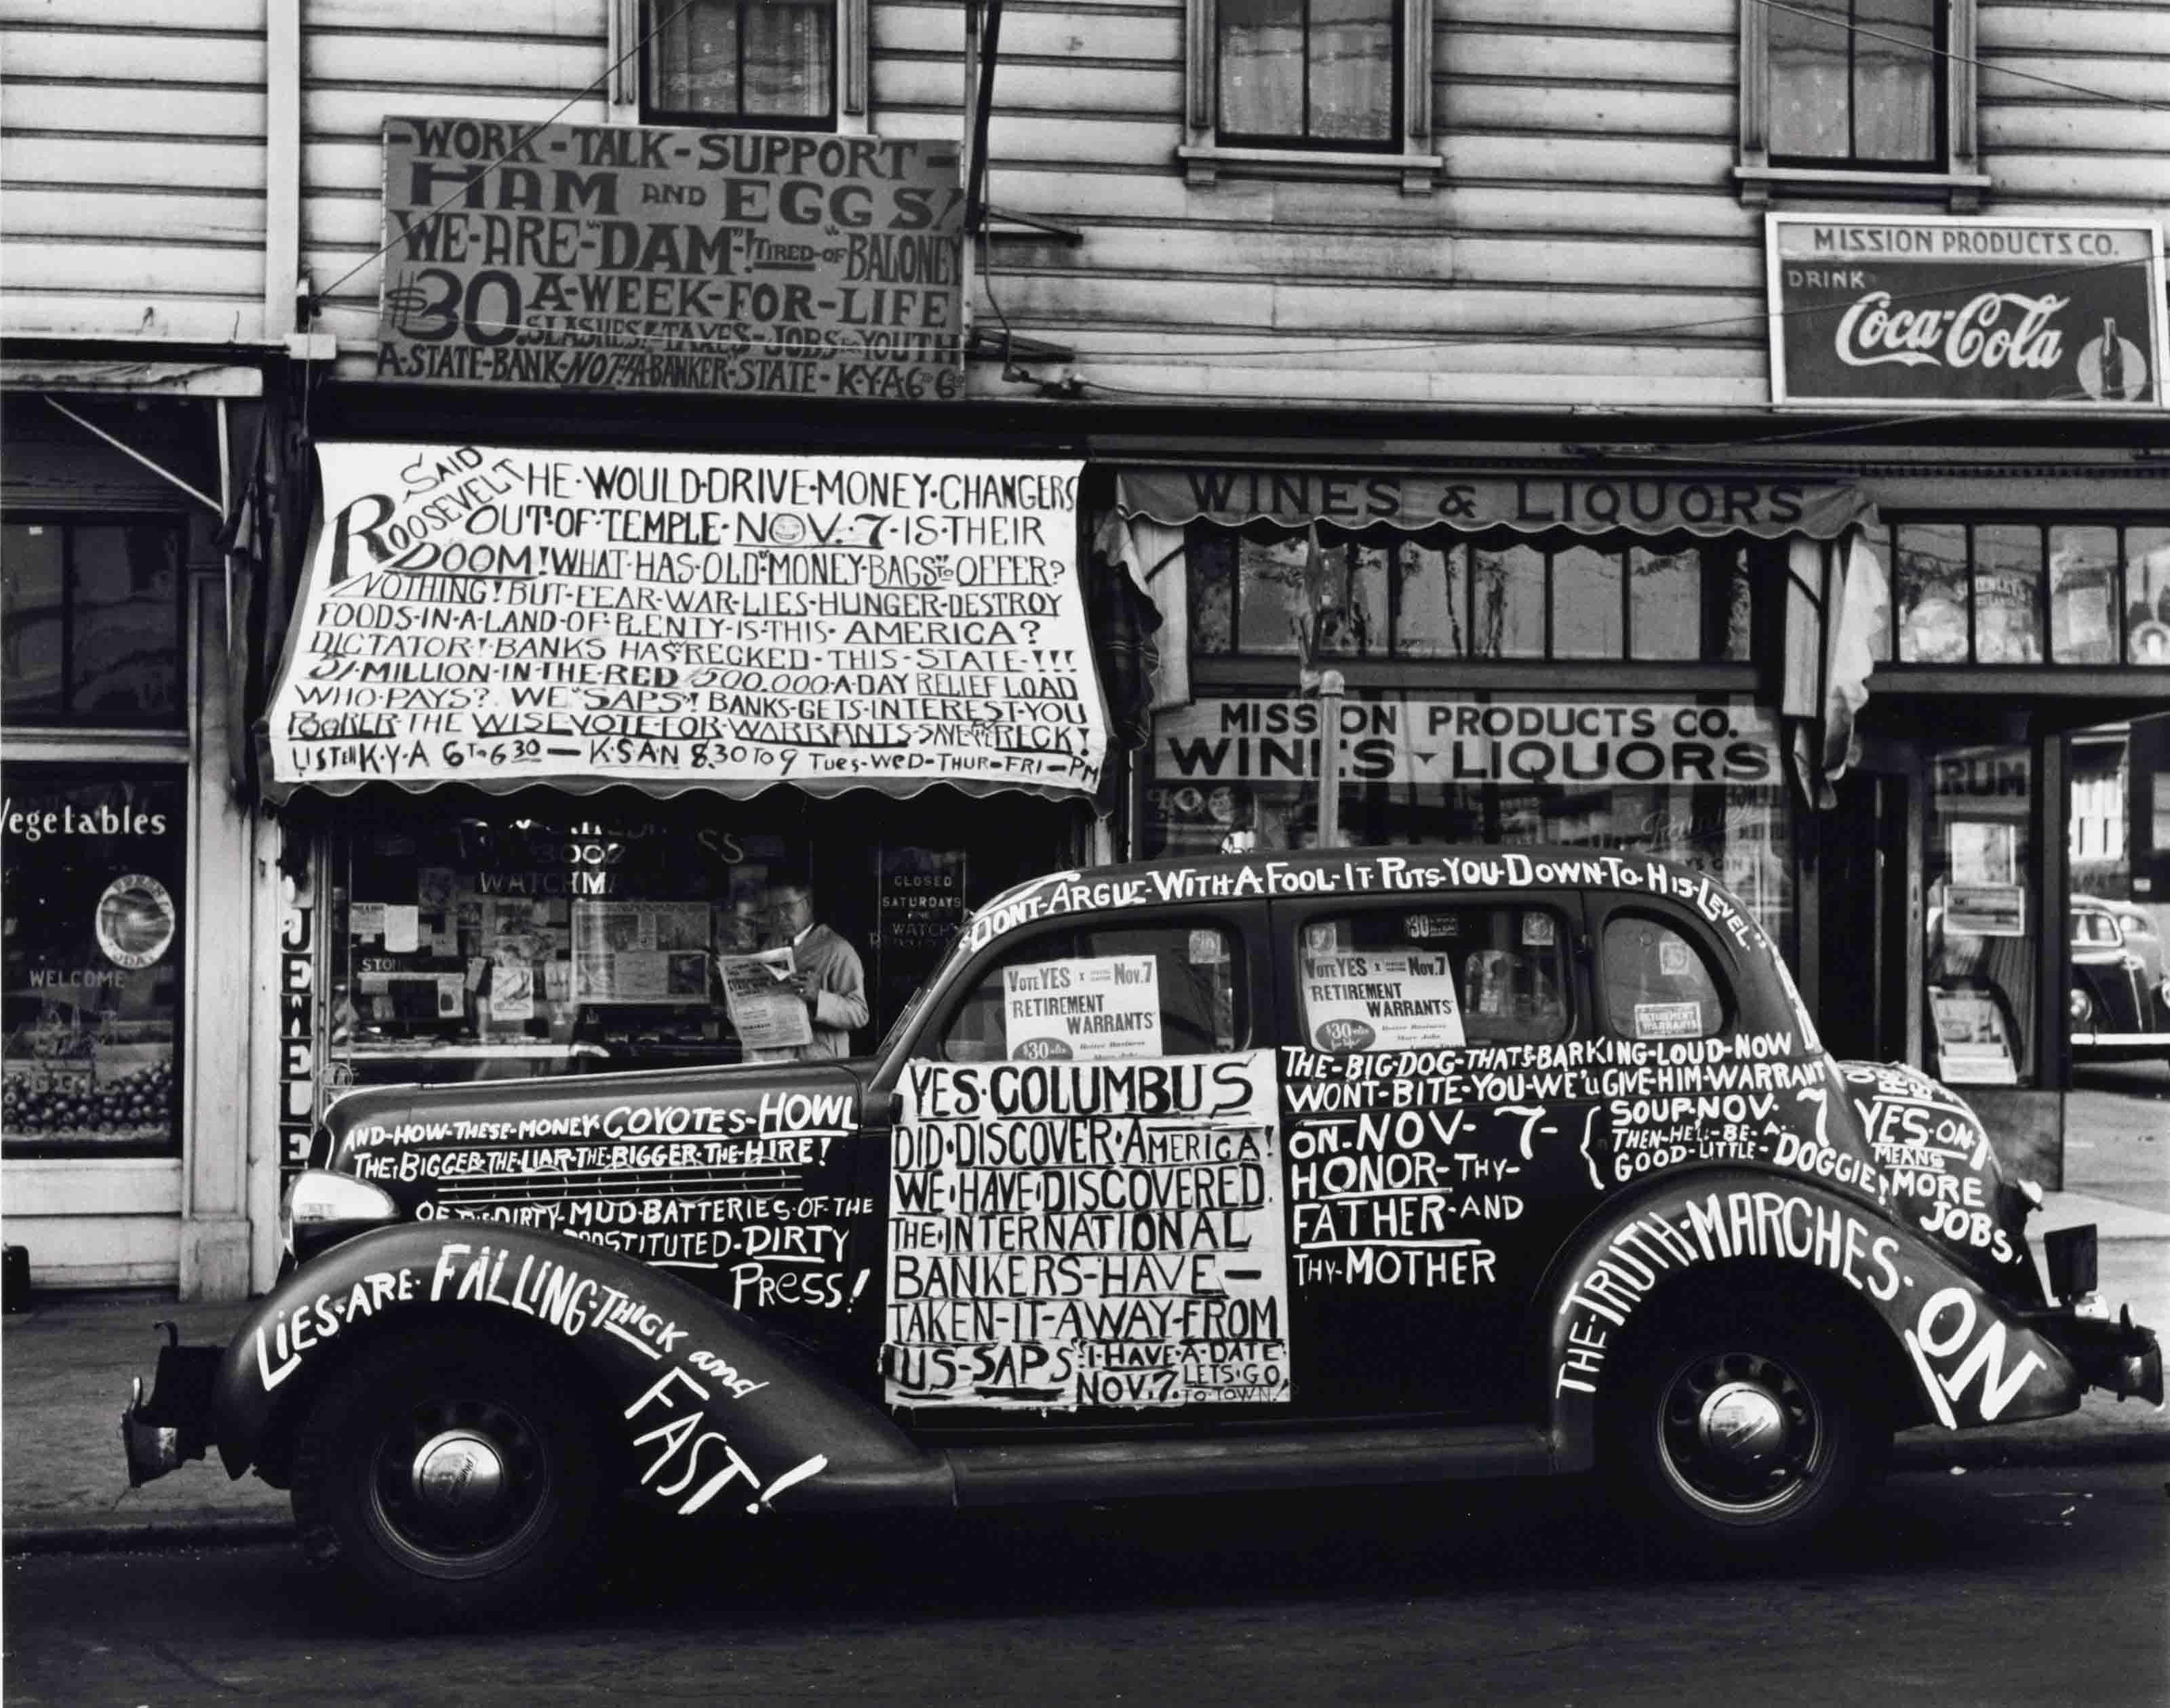 -WORK-TALK-SUPPORT-
HAM AND EGGS!
WE-ARE-"DAM"-! TIRED-OF "BALONEY
$30 A-WEEK-FOR-LIFE
SLASHES-TAXES-JOBS-YOUTH
A-STATE-BANK-NOT-A-BANKER-STATE-K-Y-A 6 TO 6:30
MISSION PRODUCTS CO.
DRINK
Coca-Cola
SAID
ROOSEVELT HE·WOULD·DRIVE·MONEY·CHANGERS
OUT·OF·TEMPLE·NOV.·7·IS·THEIR
DOOM! WHAT·HAS·OLD·"MONEY·BAGS" TO OFFER?
NOTHING! BUT-FEAR-WAR-LIES-HUNGER-DESTROY
FOODS-IN-A-LAND-OF-PLENTY-IS-THIS-AMERICA?
DICTATOR! BANKS HAS RECKED-THIS-STATE-!!!
MILLION-IN-THE-RED 500.000-A-DAY RELIEF LOAD
WHO·PAYS? WE "SAPS"! BANKS-GETS-INTEREST-YOU
THE WISE-VOTE-FOR-WARRANTS-SAVE RECK!
LISTEN K·Y·A 6 TO 6 30 — K·S·AN 8.30 TO 9 TUES-WED-THUR-FRI-PM
WINES & LIQUORS
MISSION PRODUCTS CO.
WINES - LIQUORS
RUM
Vegetables
WELCOME
JEWELE
WATCH
CLOSED
SATURDAYS
WATCH
"DONT-ARGUE-WITH-A FOOL-IT PUTS-YOU-DOWN-TO HIS-LEVEL."
VOTE YES Nov. 7
"RETIREMENT
WARRANTS"
$30
Better Business
More Jobs
$30
VOTE YES Nov. 7
"RETIREMENT
WARRANTS"
$30
Better Business
More Jobs
RETIREMENT
WARRANTS
AND-HOW-THESE-MONEY-COYOTES-HOWL
THE-BIGGER-THE-LIAR-THE-BIGGER-THE-HIRE!
DIRTY-MUD-BATTERIES-OF-THE
DIRTY
PRESS!
LIES-ARE-FALLING-THICK and
FAST!
YES·COLUMBUS
DID·DISCOVER·AMERICA!
WE·HAVE·DISCOVERED
THE·INTERNATIONAL
BANKERS-HAVE-
TAKEN-IT-AWAY-FROM
US-SAPS "I-HAVE-A-DATE
NOV. 7. LETS·GO
TO·TOWN!
THE-BIG-DOG-THATS-BARKING-LOUD-NOW
WONT-BITE-YOU-WE'LL GIVE-HIM-WARRANT
ON-NOV- 7- { SOUP-NOV. 7
THEN-HE'LL-BE-A-
GOOD-LITTLE-DOGGIE!
HONOR-THY-
FATHER-AND
THY-MOTHER
YES-ON-7
MEANS
MORE
JOBS.
THE-TRUTH-MARCHES-ON